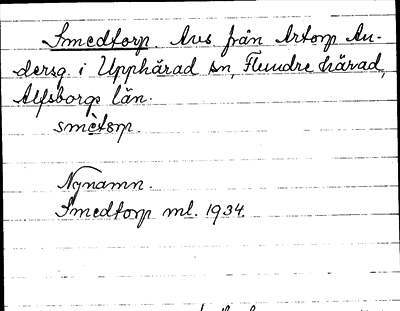 Smedtorp. Avs från Artorp An-
dersg. i Upphärad sn, Flundre härad,
Älfsborgs län.
smètorp.
Nynamn.
Smedtorp ml. 1934.